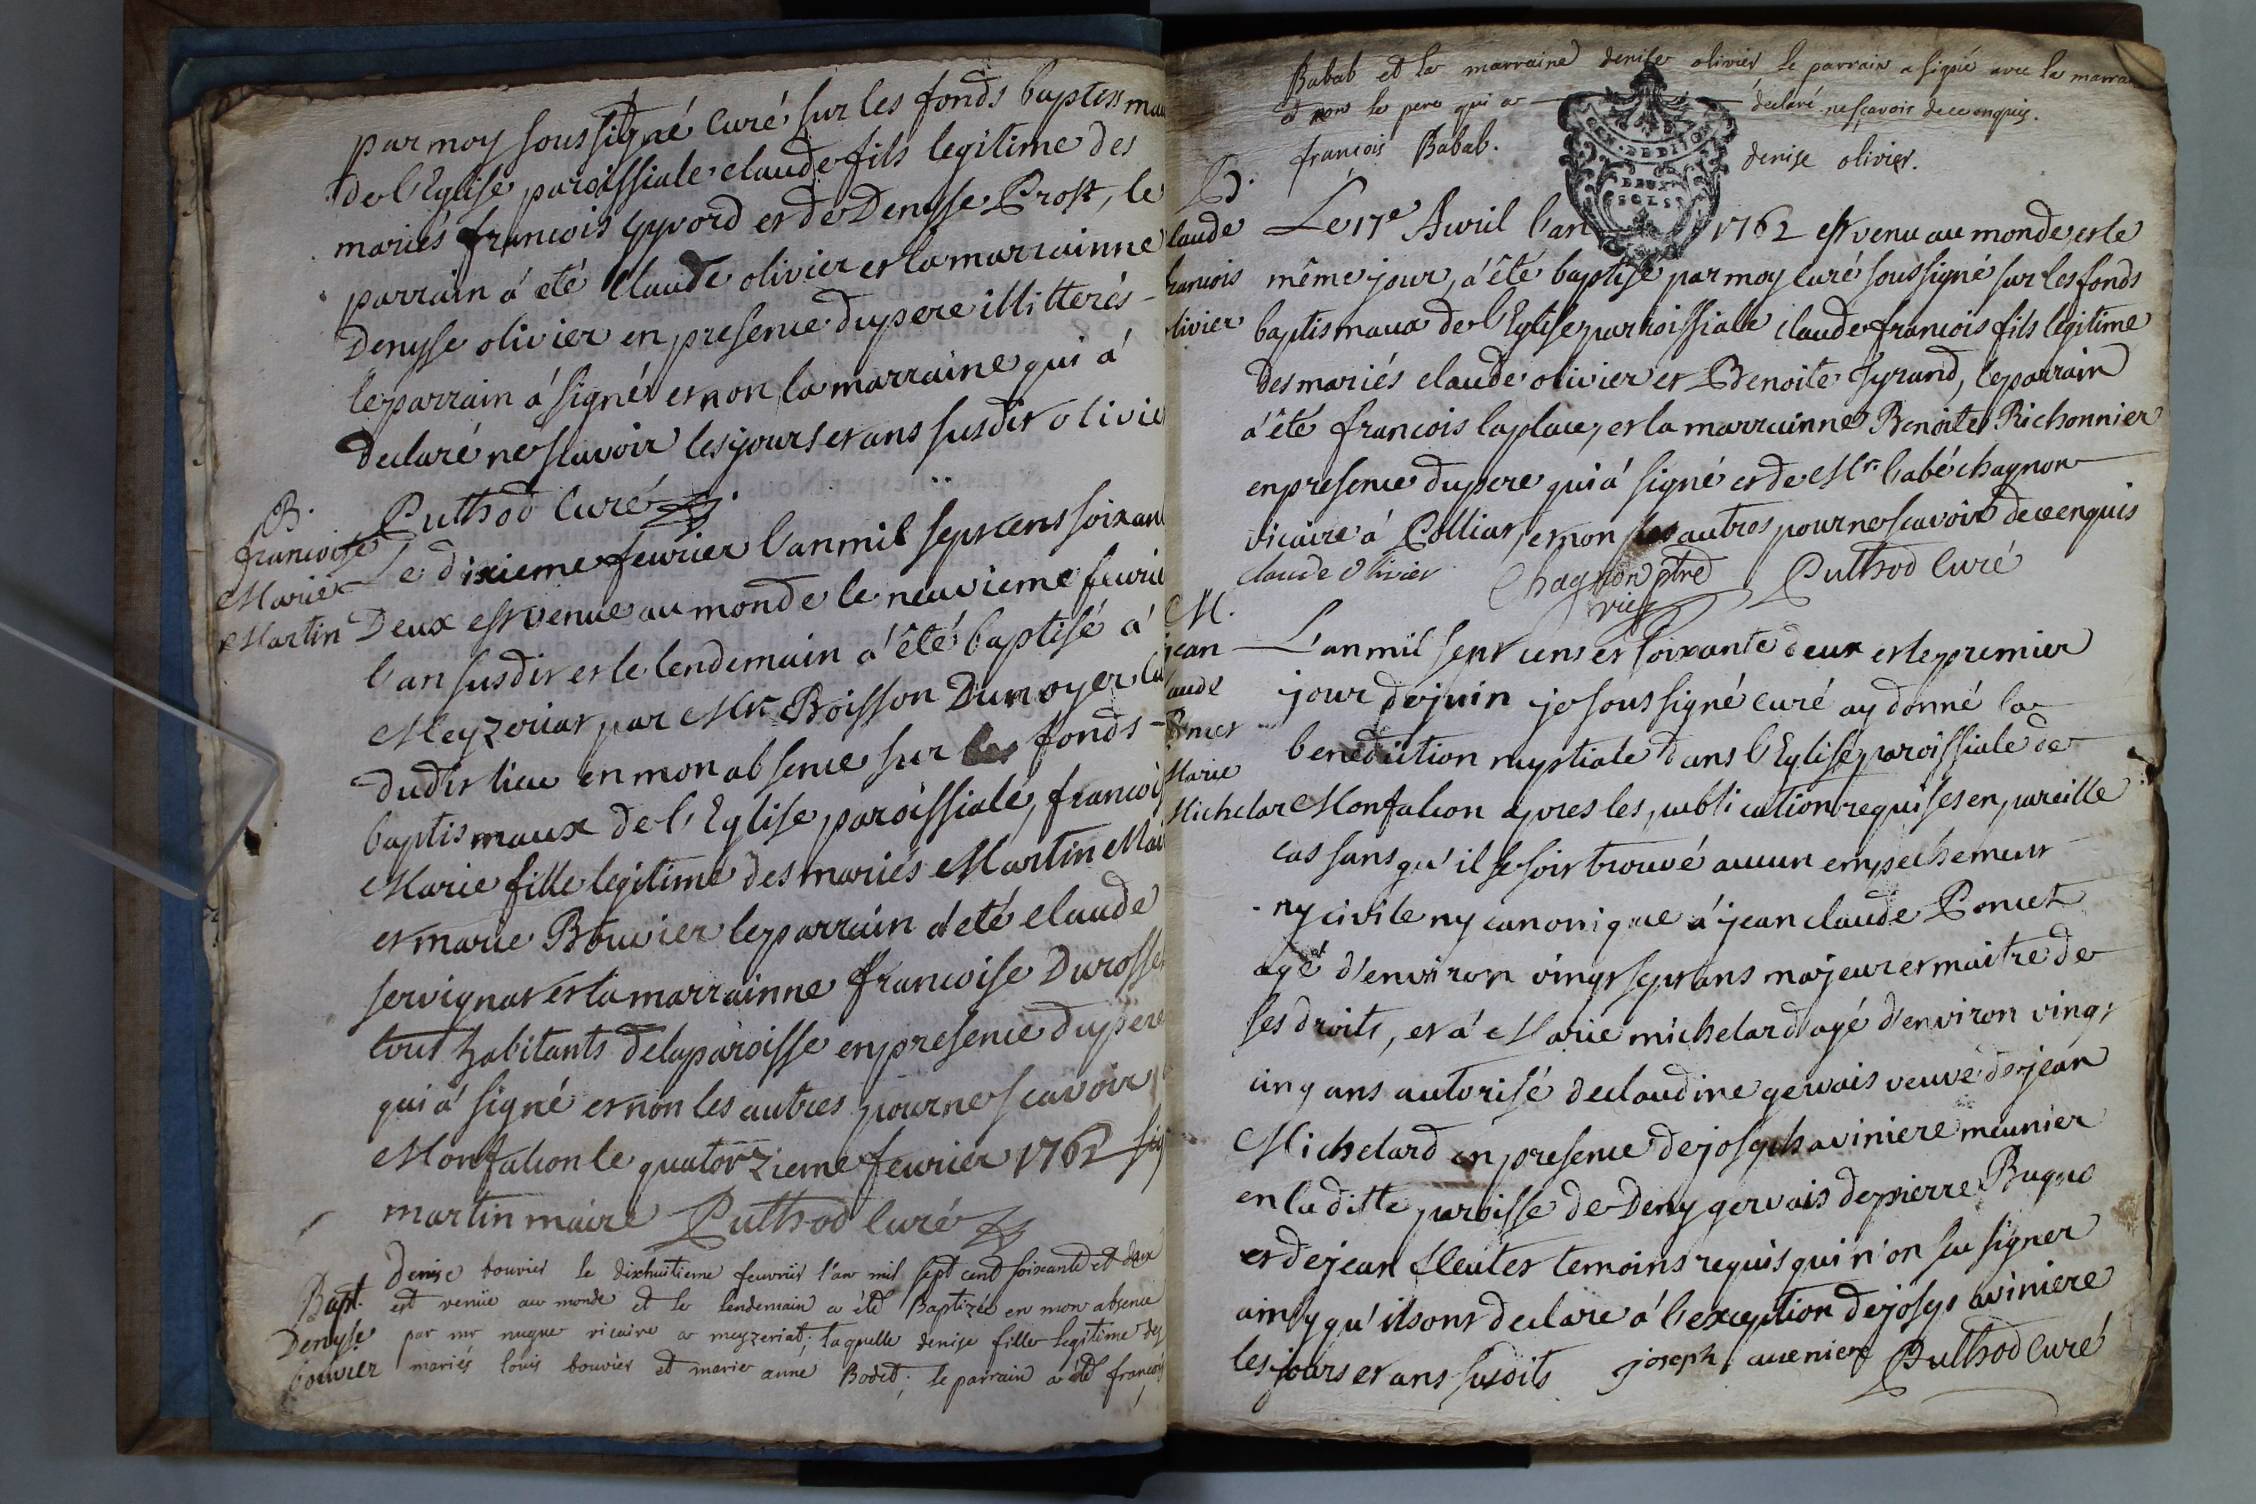 par moy soussigné curé sur les fonds baptismau
de l'Eglise paroissiale claude fils legitime des
mariés françois gyvord et de Denysse Prost, le
parrain á eté Claude olivier et la marrainne
Denysse olivier en presence du pere illitterés -
le parrain á signé et non la marraine qui á
declaré ne scavoir les jours et ans susdit olivie
Puthod Curé
B.
francoise
Marie
Martin
Le dixieme fevrier l'an mil sept cens soixan
Deux est venue au monde le neuvieme fevrie
l'an susdit et le lendemain á été baptisé á
Meyzeriat par Mr. Boisson Dunoyer cu
dudit lieu en mon absence sur les fonds -
baptismaux de l'Eglise paroissiale, francois
Marie fille legitime des mariés Martin Mai
et marie Bouvier le parrain á eté claude
servignat et la marrainne francoise Durosse
tous habitants de la paroisse en presence du pere
qui á signé et non les autres pour ne scavoir
Monfalcon le quatorzieme fevrier 1762 sig
martin maire Puthod Curé
Bapt.
Denyse
bouvier
Denise bouvier le dixhuitieme feuvrier l'an mil sept cent soixante et deux
est venüe au monde et le lendemain a été Baptizée en mon absence
par mr nugue vicaire a meyzeriat; laquelle denise fille legitime des
mariés louis bouvier et marie anne Bodet; le parrain a été francois
Babab et la marraine denise olivier le parrain a signé avec la marrai
et non le pere qui a declaré ne sçavoir de ce enquis.
françois Babab. denise olivier.
GEN. DE DIJON
DEUX
SOLS
B.
laude
rancois
livier
Le 17e Avril l'an 1762 est venu au monde et le
même jour, á été baptisé par moy curé soussigné sur les fonds
baptismaux de l'Eglise parroissialle claude francois fils légitime
des mariés claude olivier et Benoite Tyrand, le parrain
á été francois laplace, et la marrainne Benoite Richonnier
en presence du pere qui á signé et de Mr. l'abé chagnon
vicaire á Polliat, et non les autres pour ne scavoir de ce enquis
claude Olivier Chagnon ptre Puthod Curé
vic
M.
jean
aude
Poncet
Marie
Michelar
L'an mil sept cens et soixante deux et le premier
jour de juin je soussigné curé ay donné la
benediction nuptiale dans l'Eglise paroissiale de
Monfalcon apres les publication requises en pareille
cas sans qu'il se soit trouvé aucun empechement
ny civile ny canonique á jean claude Poncet
agé d'environ vingt sept ans majeur et maitre de
ses droits, et á Marie michelard agé d'environ vingt
cinq ans autorisé de claudine gervais veuve de jean
Michelard en presence de joseph aviniere meunier
en la ditte paroisse de Deny gervais de pierre Bugue
et de jean fleutet temoins requis qui n'on scu signer
ainsy qu'ils ont declare á l'exception de joseps aviniere
les jours et ans susdits joseph aueniere Puthod Curé